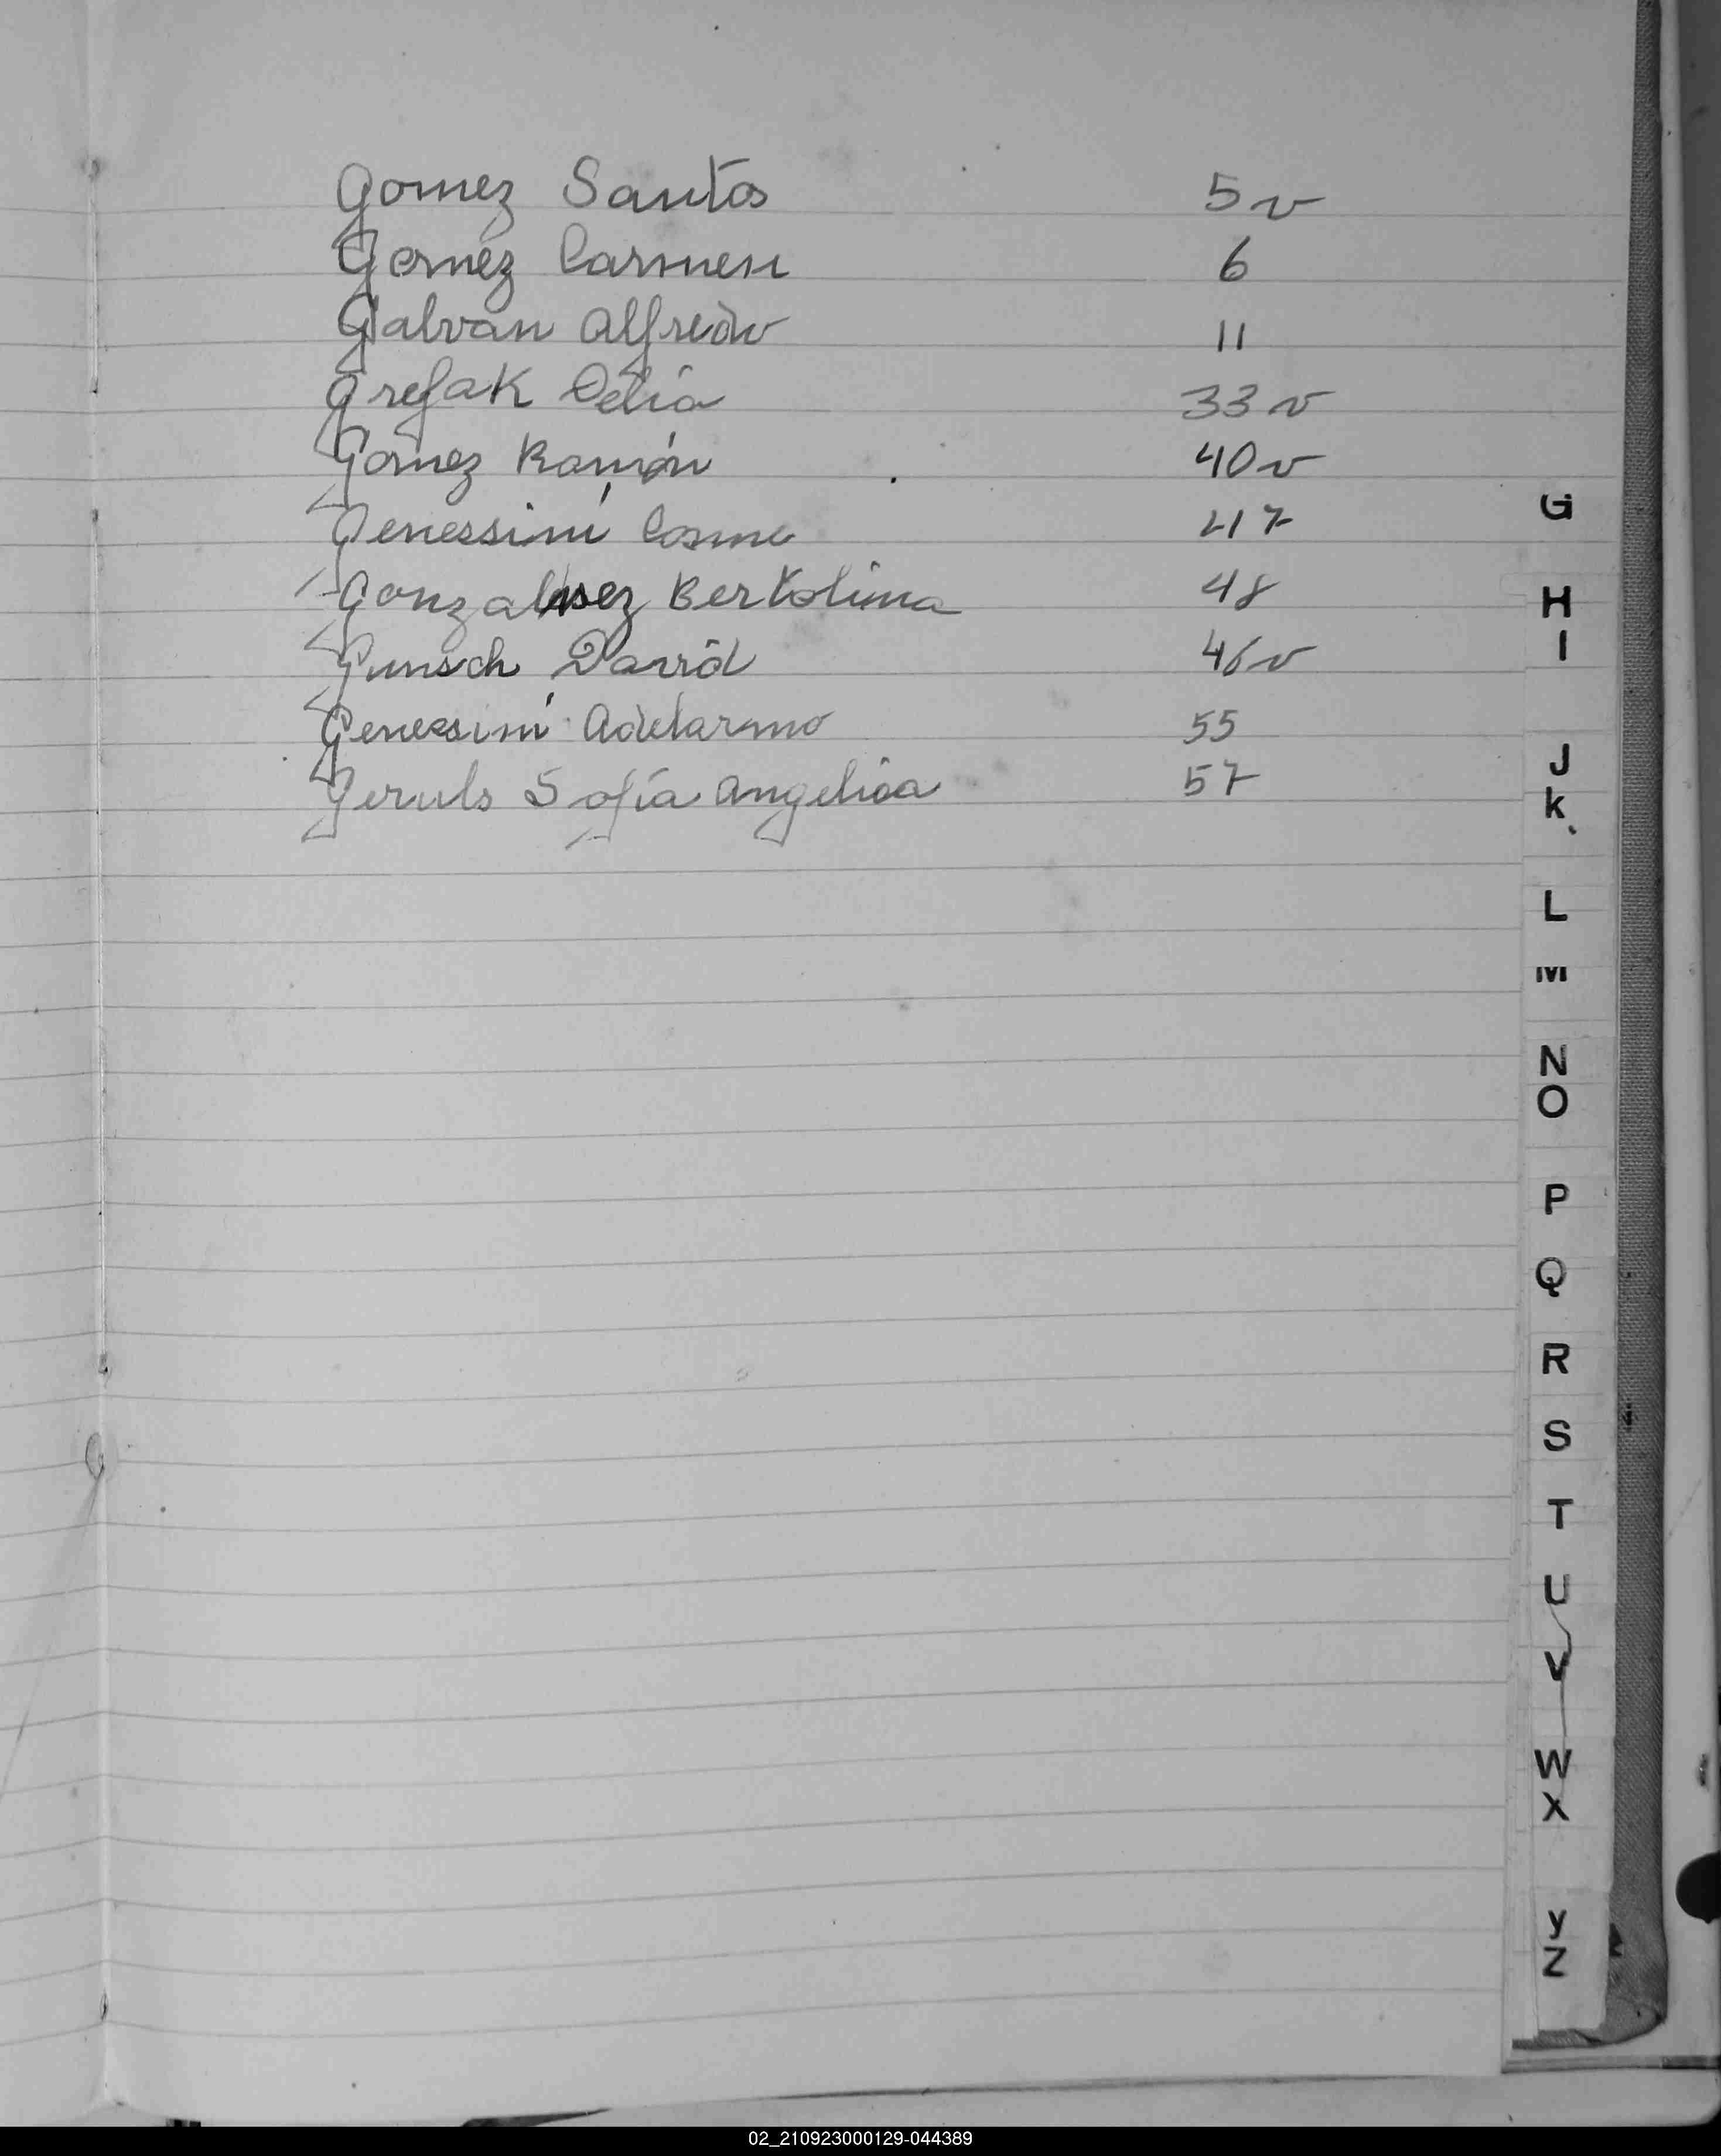 Gomez Santos 5v
Gomez Carmen 6
Galvan Alfredo 11
Grefak Delia 33v
Gomez Ramón 40v
Genessini Cosme 47
Bertolina 48
Gunsch David 46v
Genessini Adelarmo 55
Geruls Sofía Angelica 57
G
H
I
J
K
L
M
N
O
P
Q
R
S
T
U
V
W
X
Y
Z
02_210923000129-044389